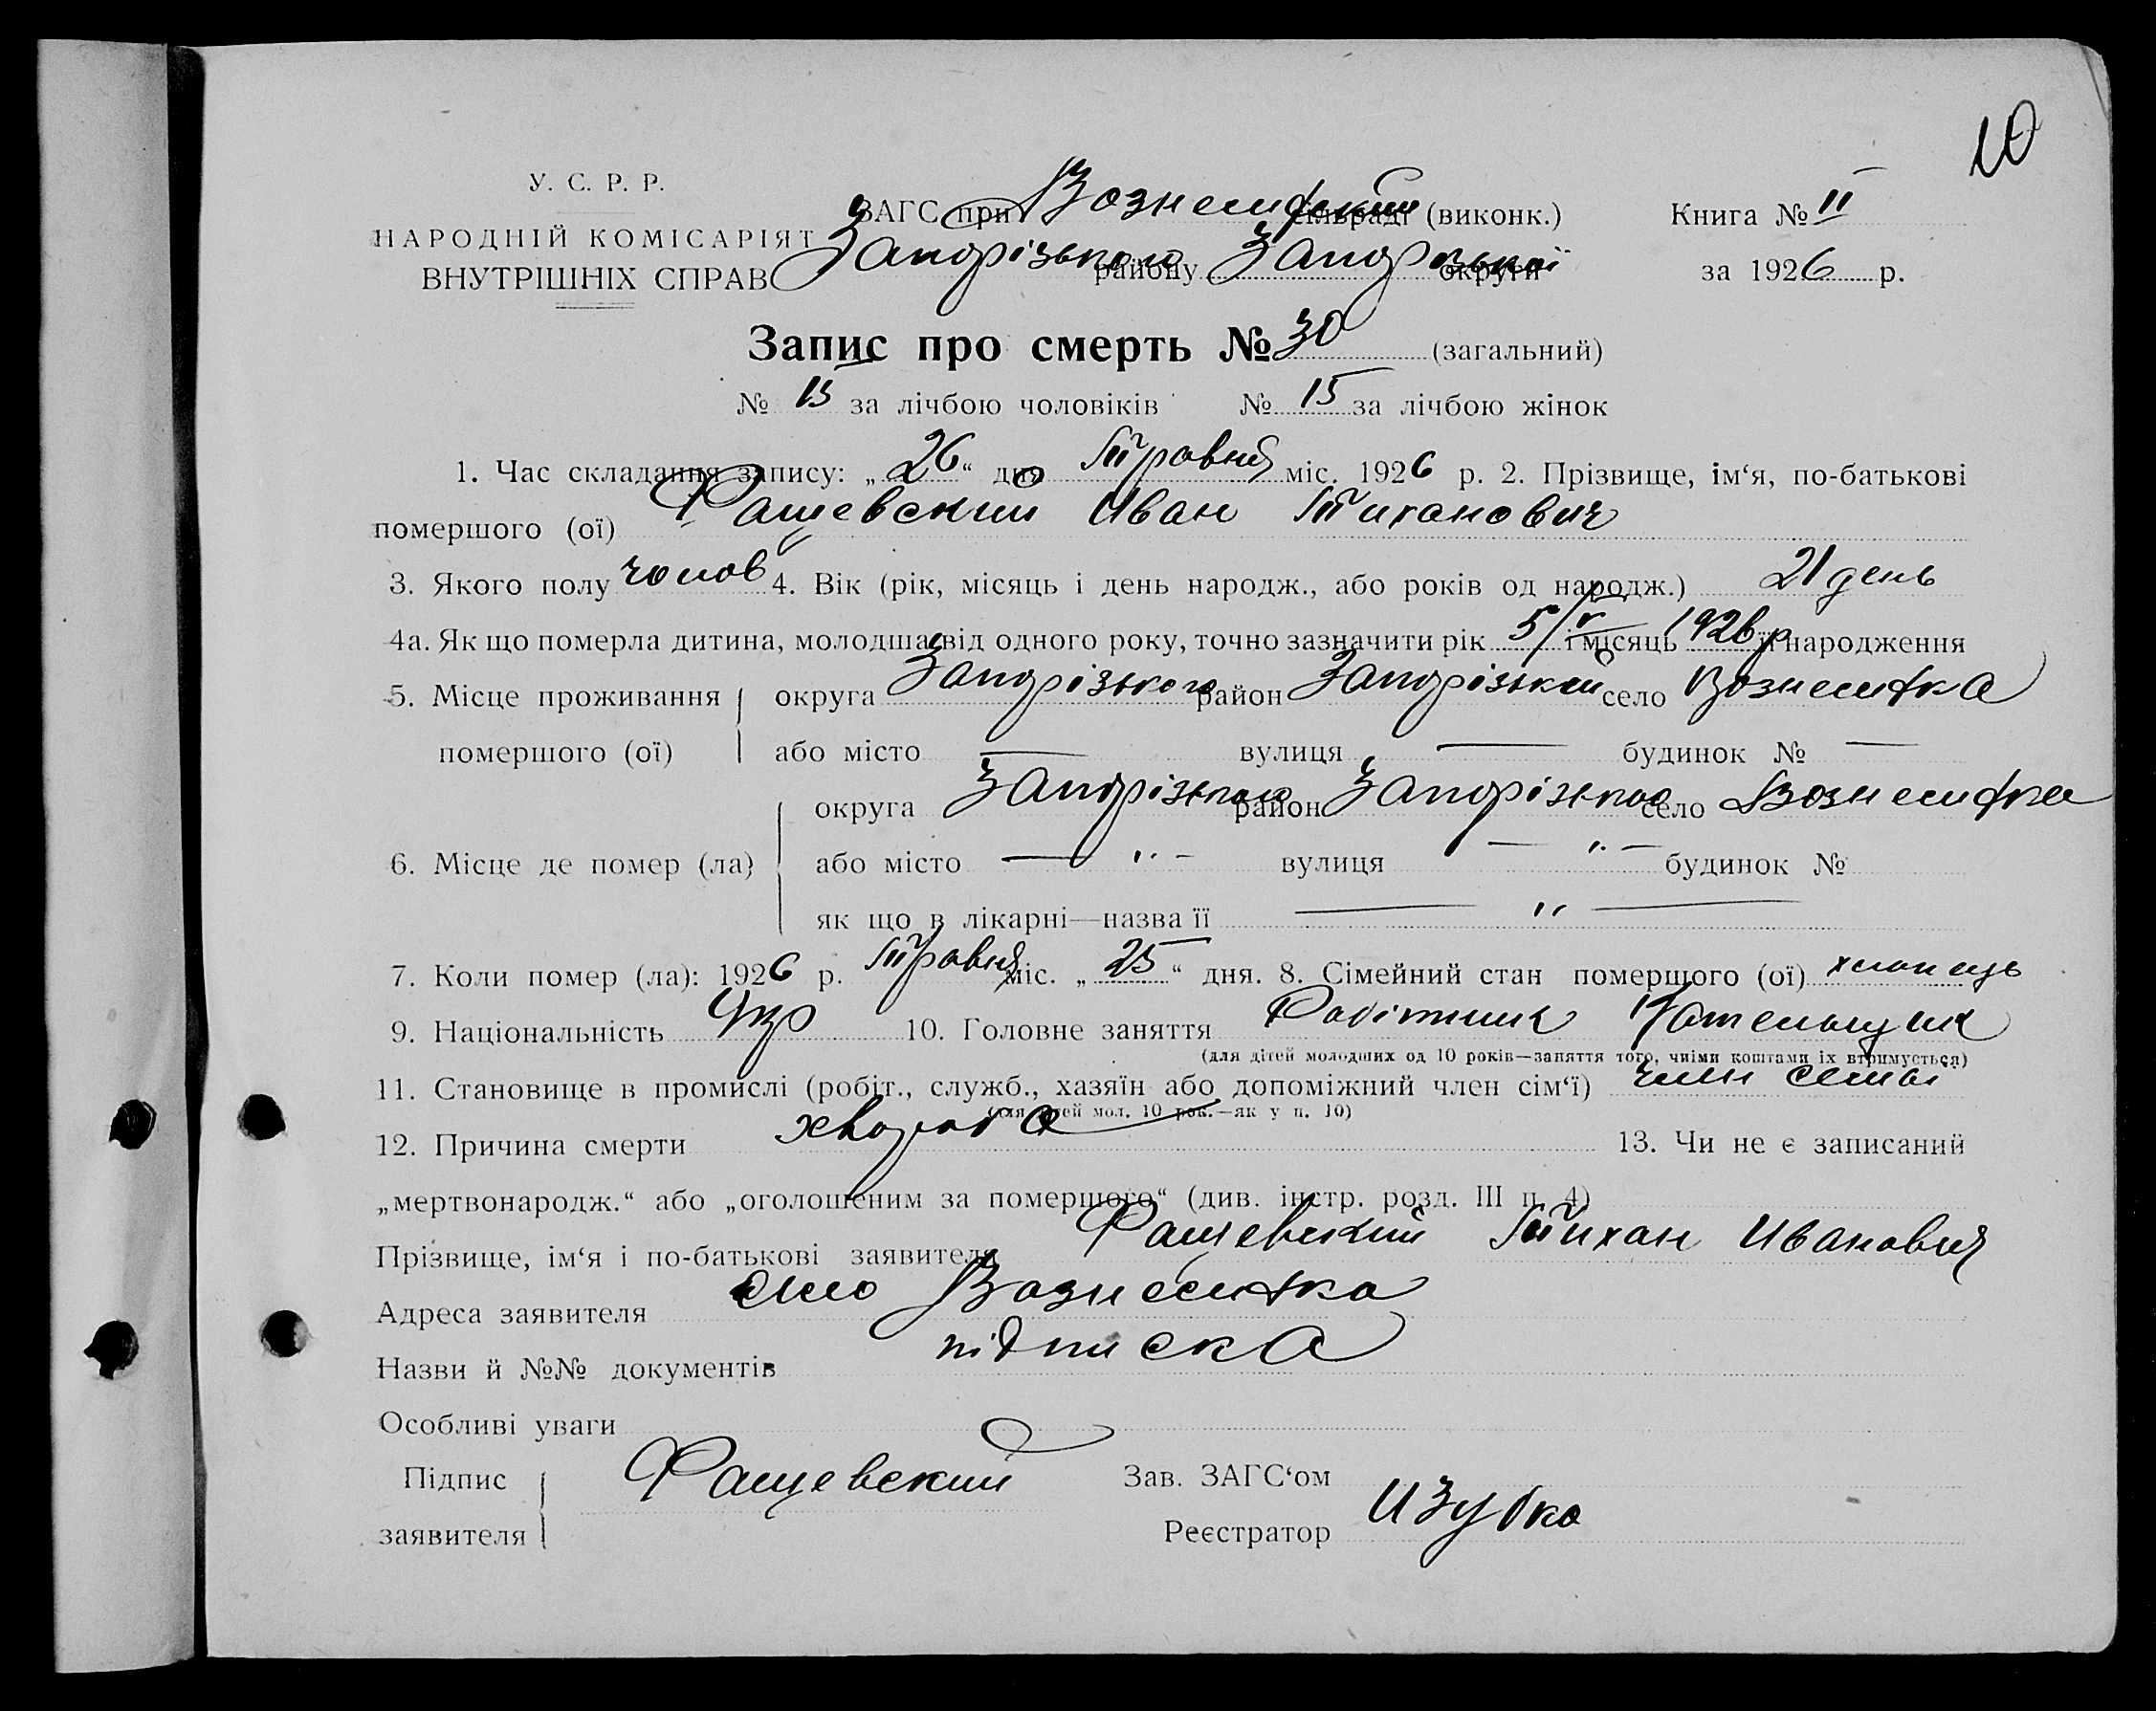 10
У. С. Р. Р.
НАРОДНІЙ КОМІСАРІЯТ
ВНУТРІШНІХ СПРАВ
ЗАГС при Вознесенській сільраді (виконк.)
Запорізького району Запорізької округи
Книга № II
за 1926 р.
Запис про смерть № 30 (загальний)
№ 15 за лічбою чоловіків № 15 за лічбою жінок
1. Час складання запису: „26“ дня Травня міс. 1926 р. 2. Прізвище, ім‘я, по-батькові
помершого (ої) Фащевский Иван Тиханович
3. Якого полу чолов 4. Вік (рік, місяць і день народж., або років од народж.) 21 день
4а. Як що померла дитина, молодша від одного року, точно зазначити рік 5/V і місяць 1926 р її народження
5. Місце проживання округа Запорізького район Запорізький село Вознесенка
помершого (ої) або місто — вулиця — будинок № —
округа Запорізького район Запорізького село Вознесенка
6. Місце де помер (ла) або місто — „ — вулиця — „ — будинок №
як що в лікарні—назва її — „ —
7. Коли помер (ла): 1926 р. Травня міс. „25“ дня. 8. Сімейний стан померщого (ої) хлопець
9. Національність Укр 10. Головне заняття Робітник Котельщик
(для дітей молодших од 10 років—заняття того, чиїми коштами їх втримується)
11. Становище в промислі (робіт., служб., хазяїн або допоміжний член сім‘ї) член семьї
(для дітей мол. 10 рок.—як у п. 10)
12. Причина смерти хвороба 13. Чи не є записаний
„мертвонародж.“ або „оголошеним за помершого“ (див. інстр. розд. III п. 4)
Прізвище, ім‘я і по-батькові заявителя Фащевский Тихан Иванович
Адреса заявителя село Вознесенка
Назви й №№ документів підписка
Особливі уваги
Підпис заявителя Фащевский
Зав. ЗАГС‘ом
Реєстратор И Зубко